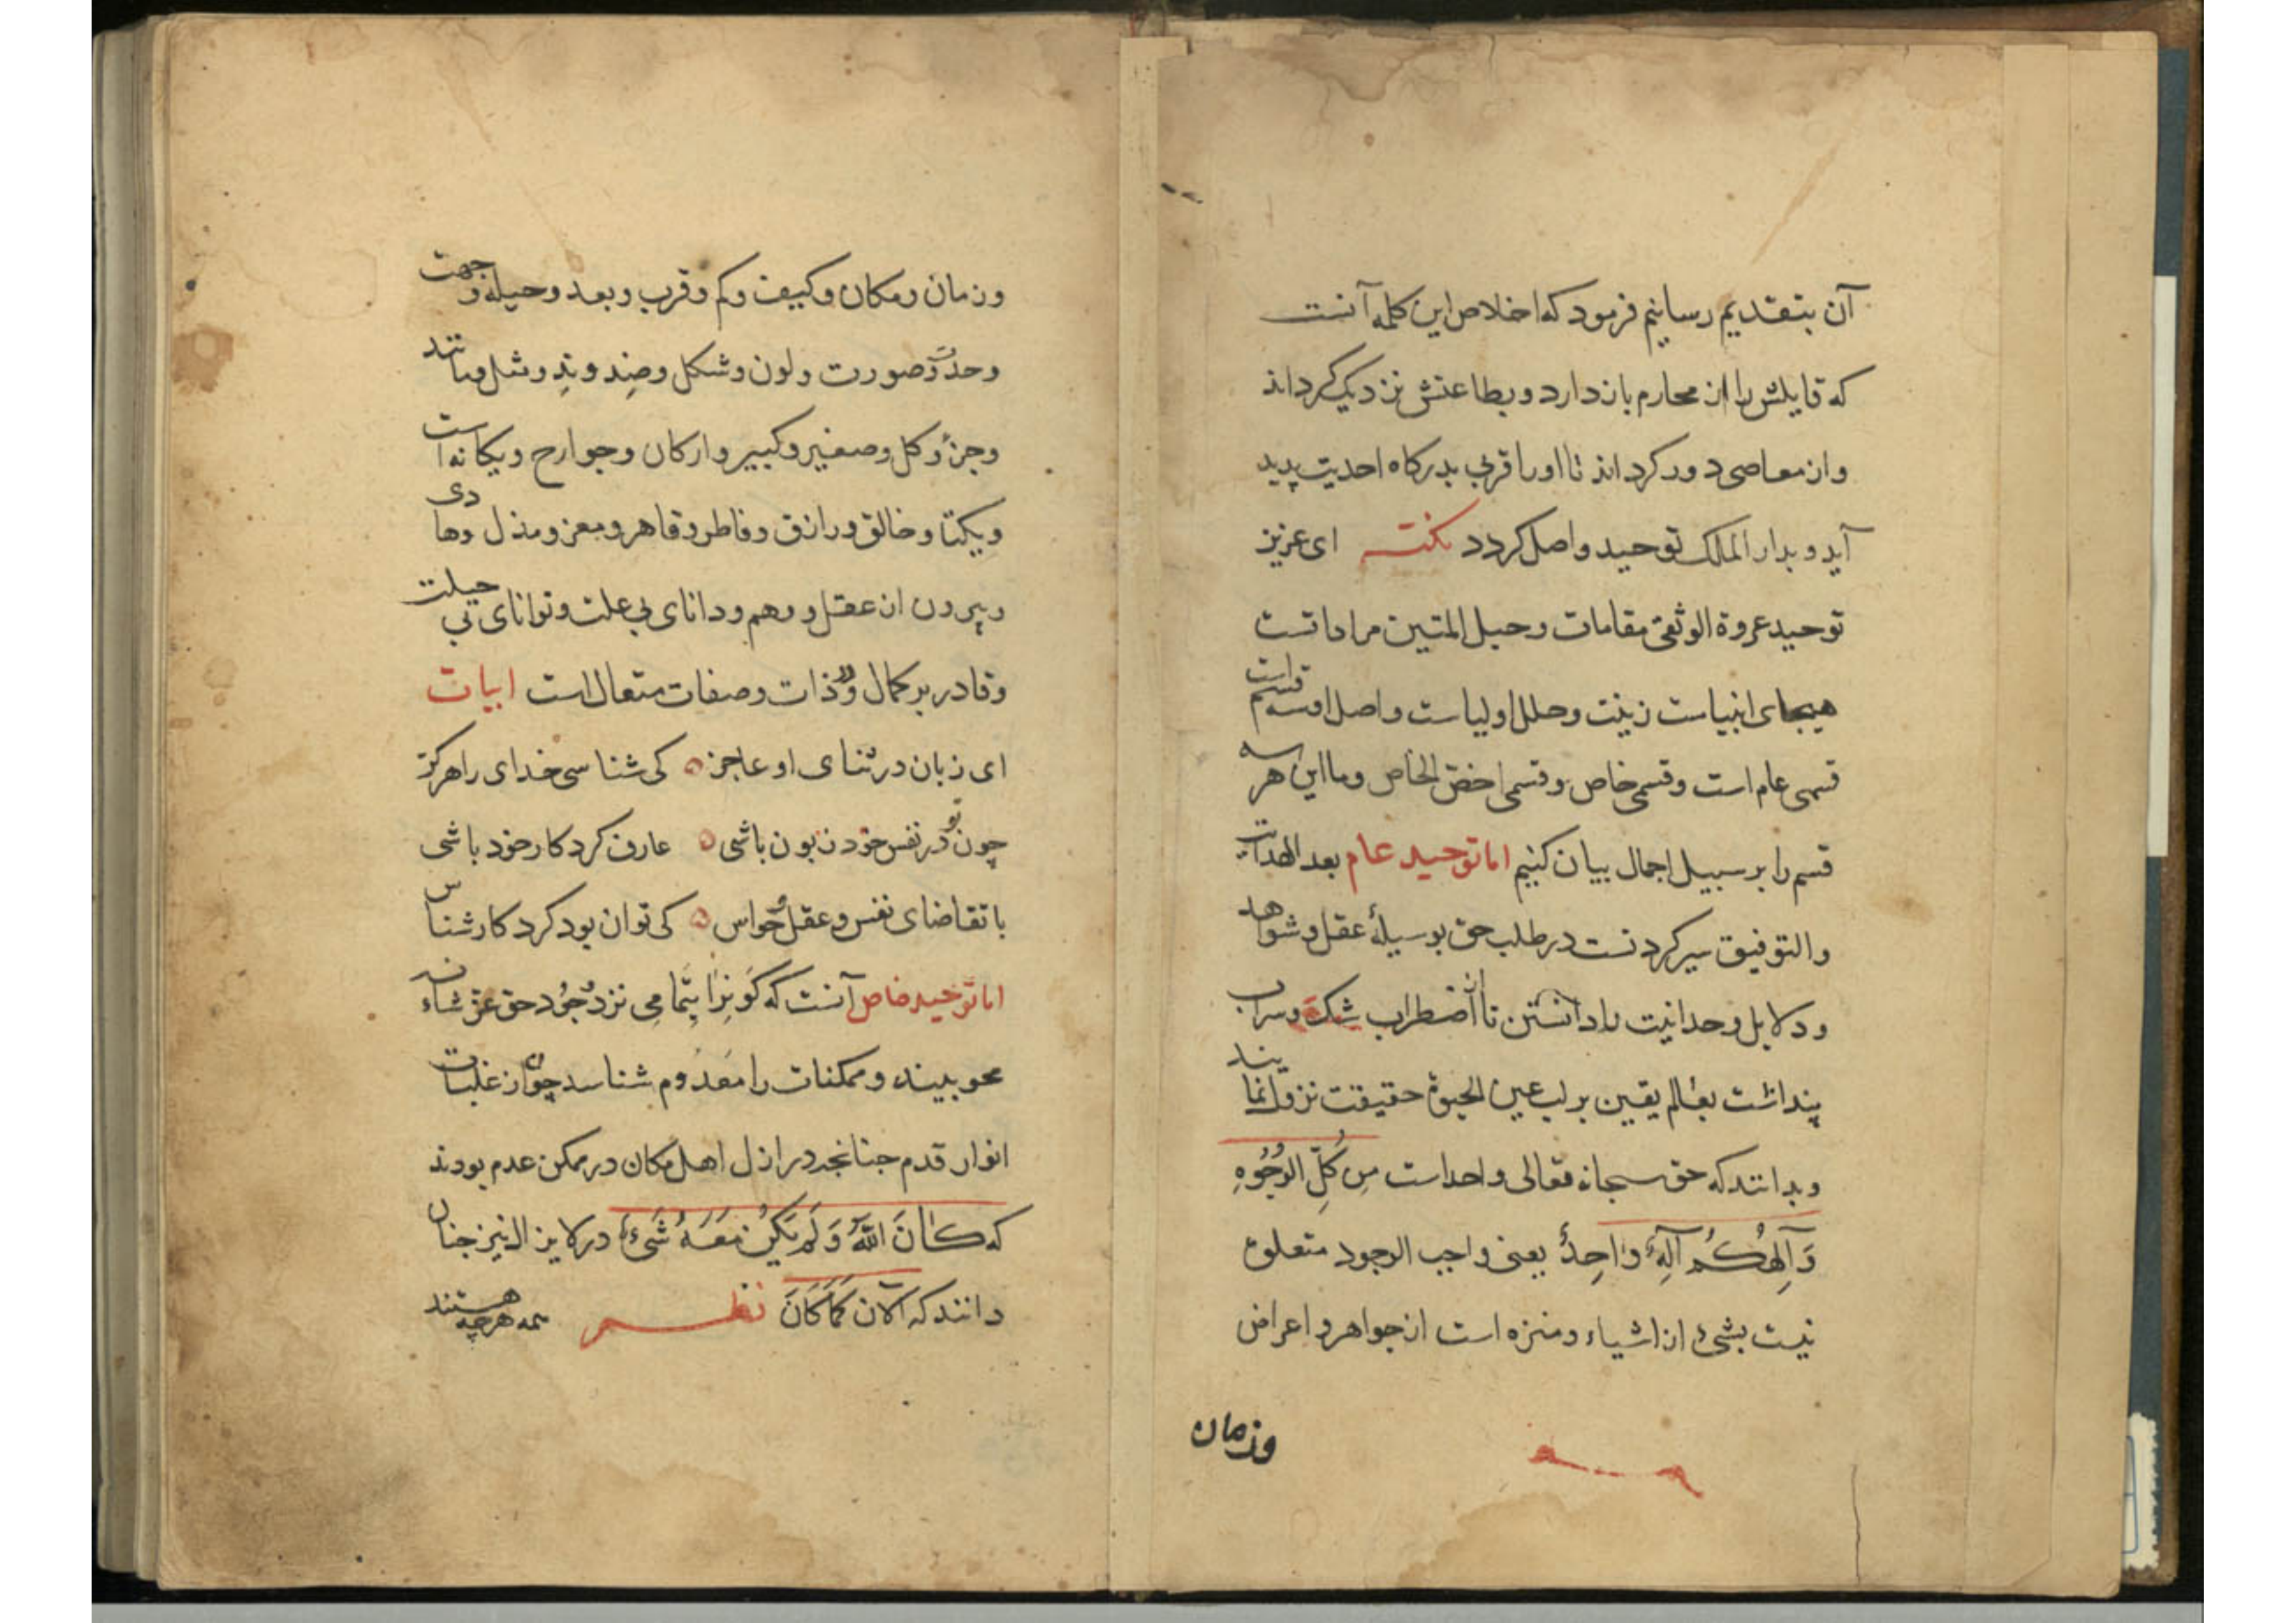 آن بتقدیم رسانیم فرمود که اخلاص این کلمه آنست
که قایلش را از محارم باز دارد و بطاعتش نزدیک کرداند
واز معاصی دور کرداند تا اورا قربی بدرکاه احدیت پدید
آید و بدار الملک توحید واصل کردد نکته ای عزیز
توحید عروة الوثقی مقامات وحبل المتین مرادانست
هیجای انبیاست زینت وحلل اولیاست واصل او سه قسم است
قسمی عام است وقسمی خاص وقسمی اخص الخاص وما این هر سه
قسم را بر سبیل اجمال بیان کنیم اما توحید عام بعد الهدایت
والتوفیق سیر کردنست در طلب حق بوسیلهٔ عقل و شواهد
ودلایل وحدانیت را دانستن تا از اضطراب شک وسراب
پنداشت بعالم یقین بر لب عین الحیوة حقیقت نزول نمایند
وبدانند که حق سبحانه وتعالی واحداست مِن کُلِّ الوُجُوهِ
وَآلِهُکُم آلِهٌ وٰاحِدٌ یعنی واجب الوجود متعلق
نیست بشیٔ از اشیاء ومنزه است از جواهر و اعراض
وزمان
وزمان ومکان وکیف وکم وقرب وبعد وحیله وجهت
وحدّ وصورت ولون وشکل وضِد ونِدِ ومثل ومانند
وجزؤ وکل وصغیر وکبیر وارکان وجوارح ویکانه است
ویکتا وخالق ورازق وفاطر وقاهر ومعز ومذل وهادی
وبیرون از عقل و وهم ودانای بی علت وتوانای بی حیلت
وقادر بر کمال ودر ذات وصفات متعال است ابیات
ای زبان در ثنای او عاجز ه کی شناسی خدای را هرکز
چون تو در نفس خود زبون باشی ه عارف کردکار خود باشی
با تقاضای نفس وعقل وحواس ه کی توان بود کردکار شناس
اما توحید خاص آنست که کَونِرا بتَمامِی نزد وُجُود حق عزّ شانه
محو بیند وممکنات را مَعدُوم شناسد چون از غلبات
انوار قدم چنانچه در ازل اهل مکان در ممکن عدم بودند
که کٰانَ اللّهُ وَلَم یَکُن مَعَهُ شَیءٌ در لایزال نیز چنان
دانند که اَلآن کَمَا کَانَ نظم همه هرچه هستند